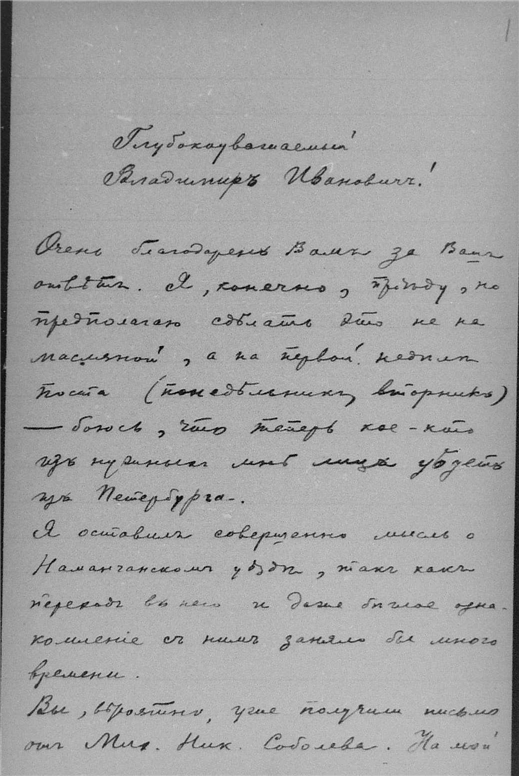 1
Глубокоуважаемый
Владимиръ Ивановичъ!
Очень благодаренъ Вамъ за Вашъ
отвѣтъ. Я, конечно, пріѣду, но
предполагаю сдѣлать это не на
масляной, а на первой недѣлѣ
поста (понедѣльникъ, вторникъ)
— боюсь, что теперь кое-кто
изъ нужныхъ мнѣ лицъ уѣдетъ
изъ Петербурга.
Я оставилъ совершенно мысль о
Наманганскомъ уѣздѣ, такъ какъ
переѣздъ въ него и даже бѣглое озна-
комленіе съ нимъ заняло бы много
времени.
Вы, вѣроятно, уже получили письмо
отъ Мих. Ник. Соболева. На мой